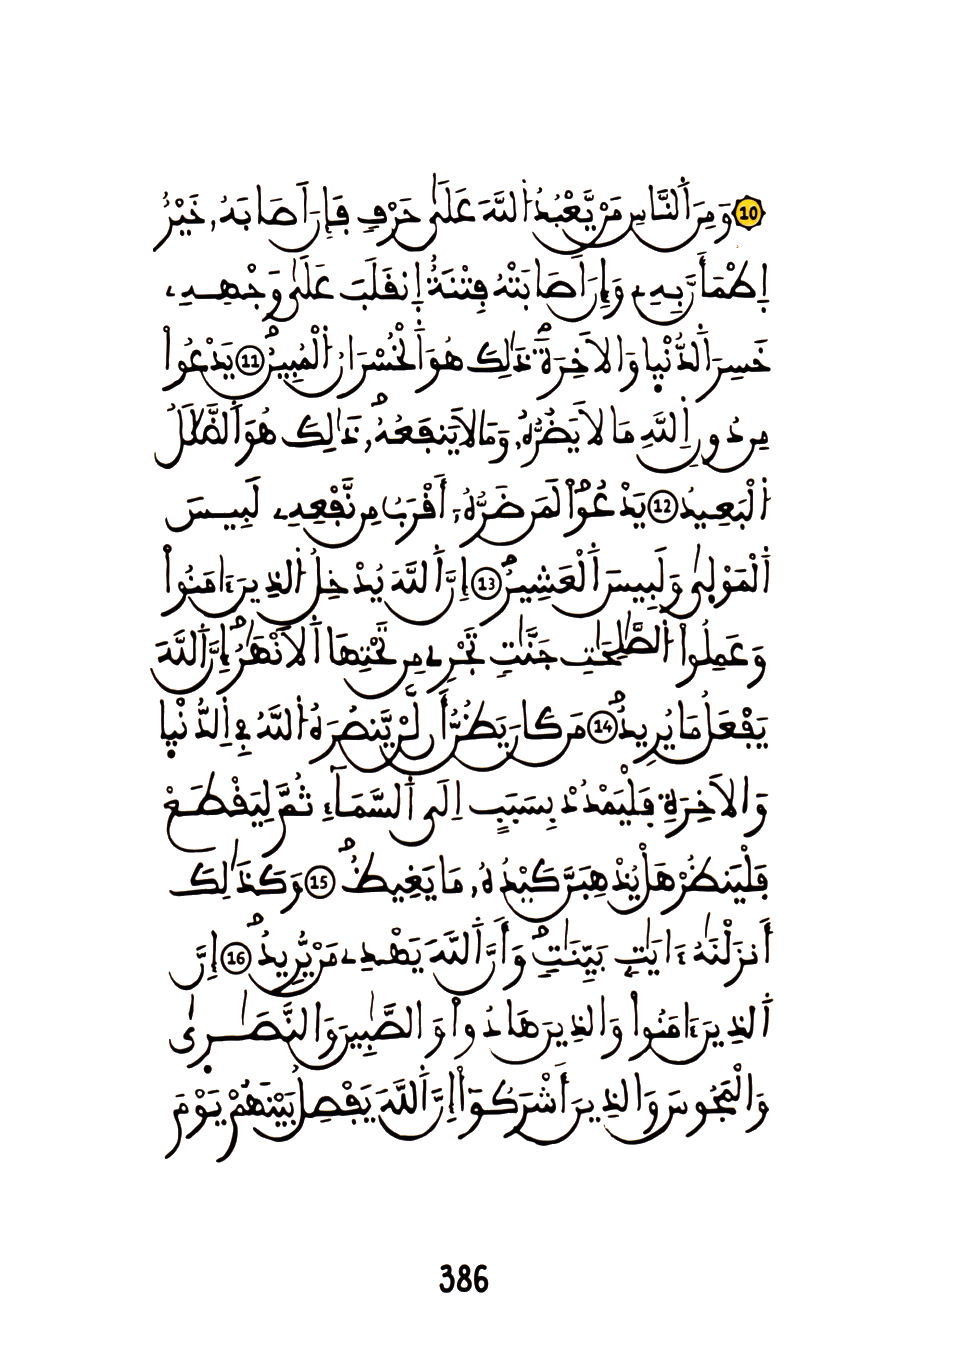 10 وَمِنَ اَ۬لنَّاسِ مَنْ يَّعْبُدُ اُ۬للَّهَ عَلَىٰ حَرْفٖ فَإِنَ اَصَابَهُۥ خَيْرٌ
اِ۪طْمَأَنَّ بِهِۦ وَإِنَ اَصَابَتْهُ فِتْنَةٌ اِ۪نقَلَبَ عَلَىٰ وَجْهِهِۦ
خَسِرَ اَ۬لدُّنْي۪ا وَالَاخِرَةَۖ ذَٰلِكَ هُوَ اَ۬لْخُسْرَانُ اُ۬لْمُبِينُۖ 11 يَدْعُواْ
مِن دُونِ اِ۬للَّهِ مَا لَا يَضُرُّهُۥ وَمَا لَا يَنفَعُهُۥۖ ذَٰلِكَ هُوَ اَ۬لضَّلَٰلُ
اُ۬لْبَعِيدُ 12 يَدْعُواْ لَمَن ضَرُّهُۥٓ أَقْرَبُ مِن نَّفْعِهِۦ لَبِيسَ
اَ۬لْمَوْل۪ىٰ وَلَبِيسَ اَ۬لْعَشِيرُۖ 13 إِنَّ اَ۬للَّهَ يُدْخِلُ اُ۬لذِينَ ءَامَنُواْ
وَعَمِلُواْ اُ۬لصَّٰلِحَٰتِ جَنَّٰتٖ تَجْرِے مِن تَحْتِهَا اَ۬لَانْهَٰرُۖ إِنَّ اَ۬للَّهَ
يَفْعَلُ مَا يُرِيدُۖ 14 مَن كَانَ يَظُنُّ أَن لَّنْ يَّنصُرَهُ اُ۬للَّهُ فِے اِ۬لدُّنْي۪ا
وَالَاخِرَةِ فَلْيَمْدُدْ بِسَبَبٍ اِلَى اَ۬لسَّمَآءِ ثُمَّ لِيَقْطَعْ
فَلْيَنظُرْ هَلْ يُذْهِبَنَّ كَيْدُهُۥ مَا يَغِيظُۖ 15 وَكَذَٰلِكَ
أَنزَلْنَٰهُ ءَايَٰتِۢ بَيِّنَٰتٖۖ وَأَنَّ اَ۬للَّهَ يَهْدِے مَنْ يُّرِيدُۖ 16 إِنَّ
اَ۬لذِينَ ءَامَنُواْ وَالذِينَ هَادُواْ وَالصَّٰبِينَ وَالنَّصَٰر۪ىٰ
وَالْمَجُوسَ وَالذِينَ أَشْرَكُوٓاْ إِنَّ اَ۬للَّهَ يَفْصِلُ بَيْنَهُمْ يَوْمَ
386